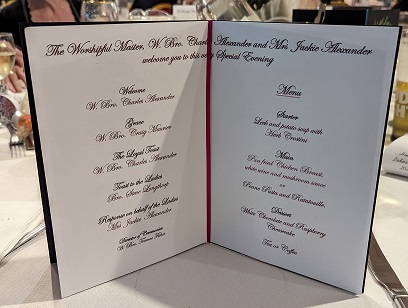 The Worshipful Master, W. Bro. Charles Alexander and Mrs Jackie Alexander
welcome you to this very Special Evening
Welcome
W. Bro. Charles Alexander
Grace
W. Bro. Craig
The Loyal Toast
W. Bro. Charles Alexander
Toast to the Ladies
Bro. Steve
Response on behalf of the Ladies
Mrs Jackie Alexander
Director of Ceremonies
W. Bro.
Menu
Starter
Leek and potato soup with
Herb Crostini
Main
Pan fried Chicken Breast,
white wine and mushroom sauce
or
Penne Pasta and Ratatouille,
Dessert
White Chocolate and Raspberry
Cheesecake
Tea or Coffee